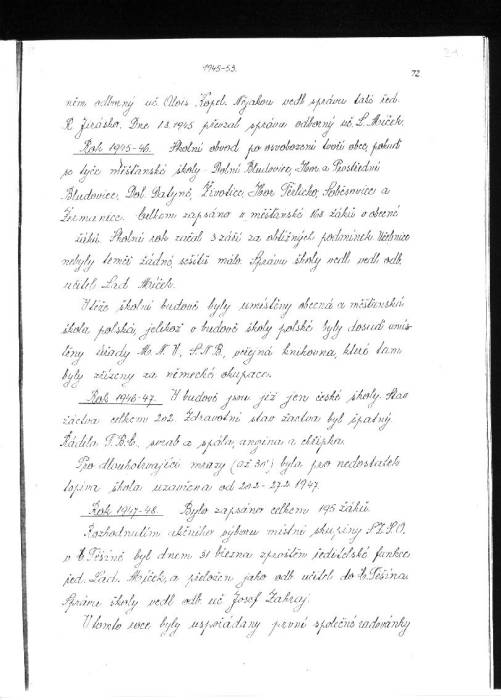 1945-53.
72
ním odborný uč. Alois Kopel. Nějakou vedl správu též řed.
R. Jirásko. Dne 1.8.1945 převzal správu odborný uč. L. Mríček.
Rok 1945-46. Školní obvod po osvobození tvoří obce, pokud
se týče měšťanské školy - Dolní Bludovice, Hor. a Prostřední
Bludovice, Dol. Datyně, Životice, Hor. Těrlicko, Soběšovice a
Žermanice. Celkem zapsáno v měšťanské 163 žáků v obecné
žáků. Školní rok začal 3. září za obtížných podmínek. Učebnice
nebyly téměř žádné, sešitů málo. Správu školy vedl vedl odb.
učitel Lad. Mríček.
V téže školní budově byly umístěny obecná a měšťanská
škola polská, jelikož v budově školy polské byly dosud umís-
těny úřady M. N. V., S.N.B., veřejná knihovna, které tam
byly zřízeny za německé okupace.
Rok 1946-47. V budově jsou již jen české školy. Stav
žactva celkem 202. Zdravotní stav žactva byl špatný.
Řádila T.B.C. svrab a spála, angina a chřipka.
Pro dlouhotrvající mrazy (až 35°) byla pro nedostatek
topiva škola uzavřena od 20.2.-27.2. 1947.
Rok 1947-48. Bylo zapsáno celkem 195 žáků.
Rozhodnutím akčního výboru místní skupiny
v Č. Těšíně byl dnem 31. března zproštěn ředitelské funkce
řed. Lad. Mríček, a přeložen jako odb. učitel do Č. Těšína.
Správu školy vedl odb. uč. Josef Zahraj.
V tomto roce byly uspořádány první společné radovánky